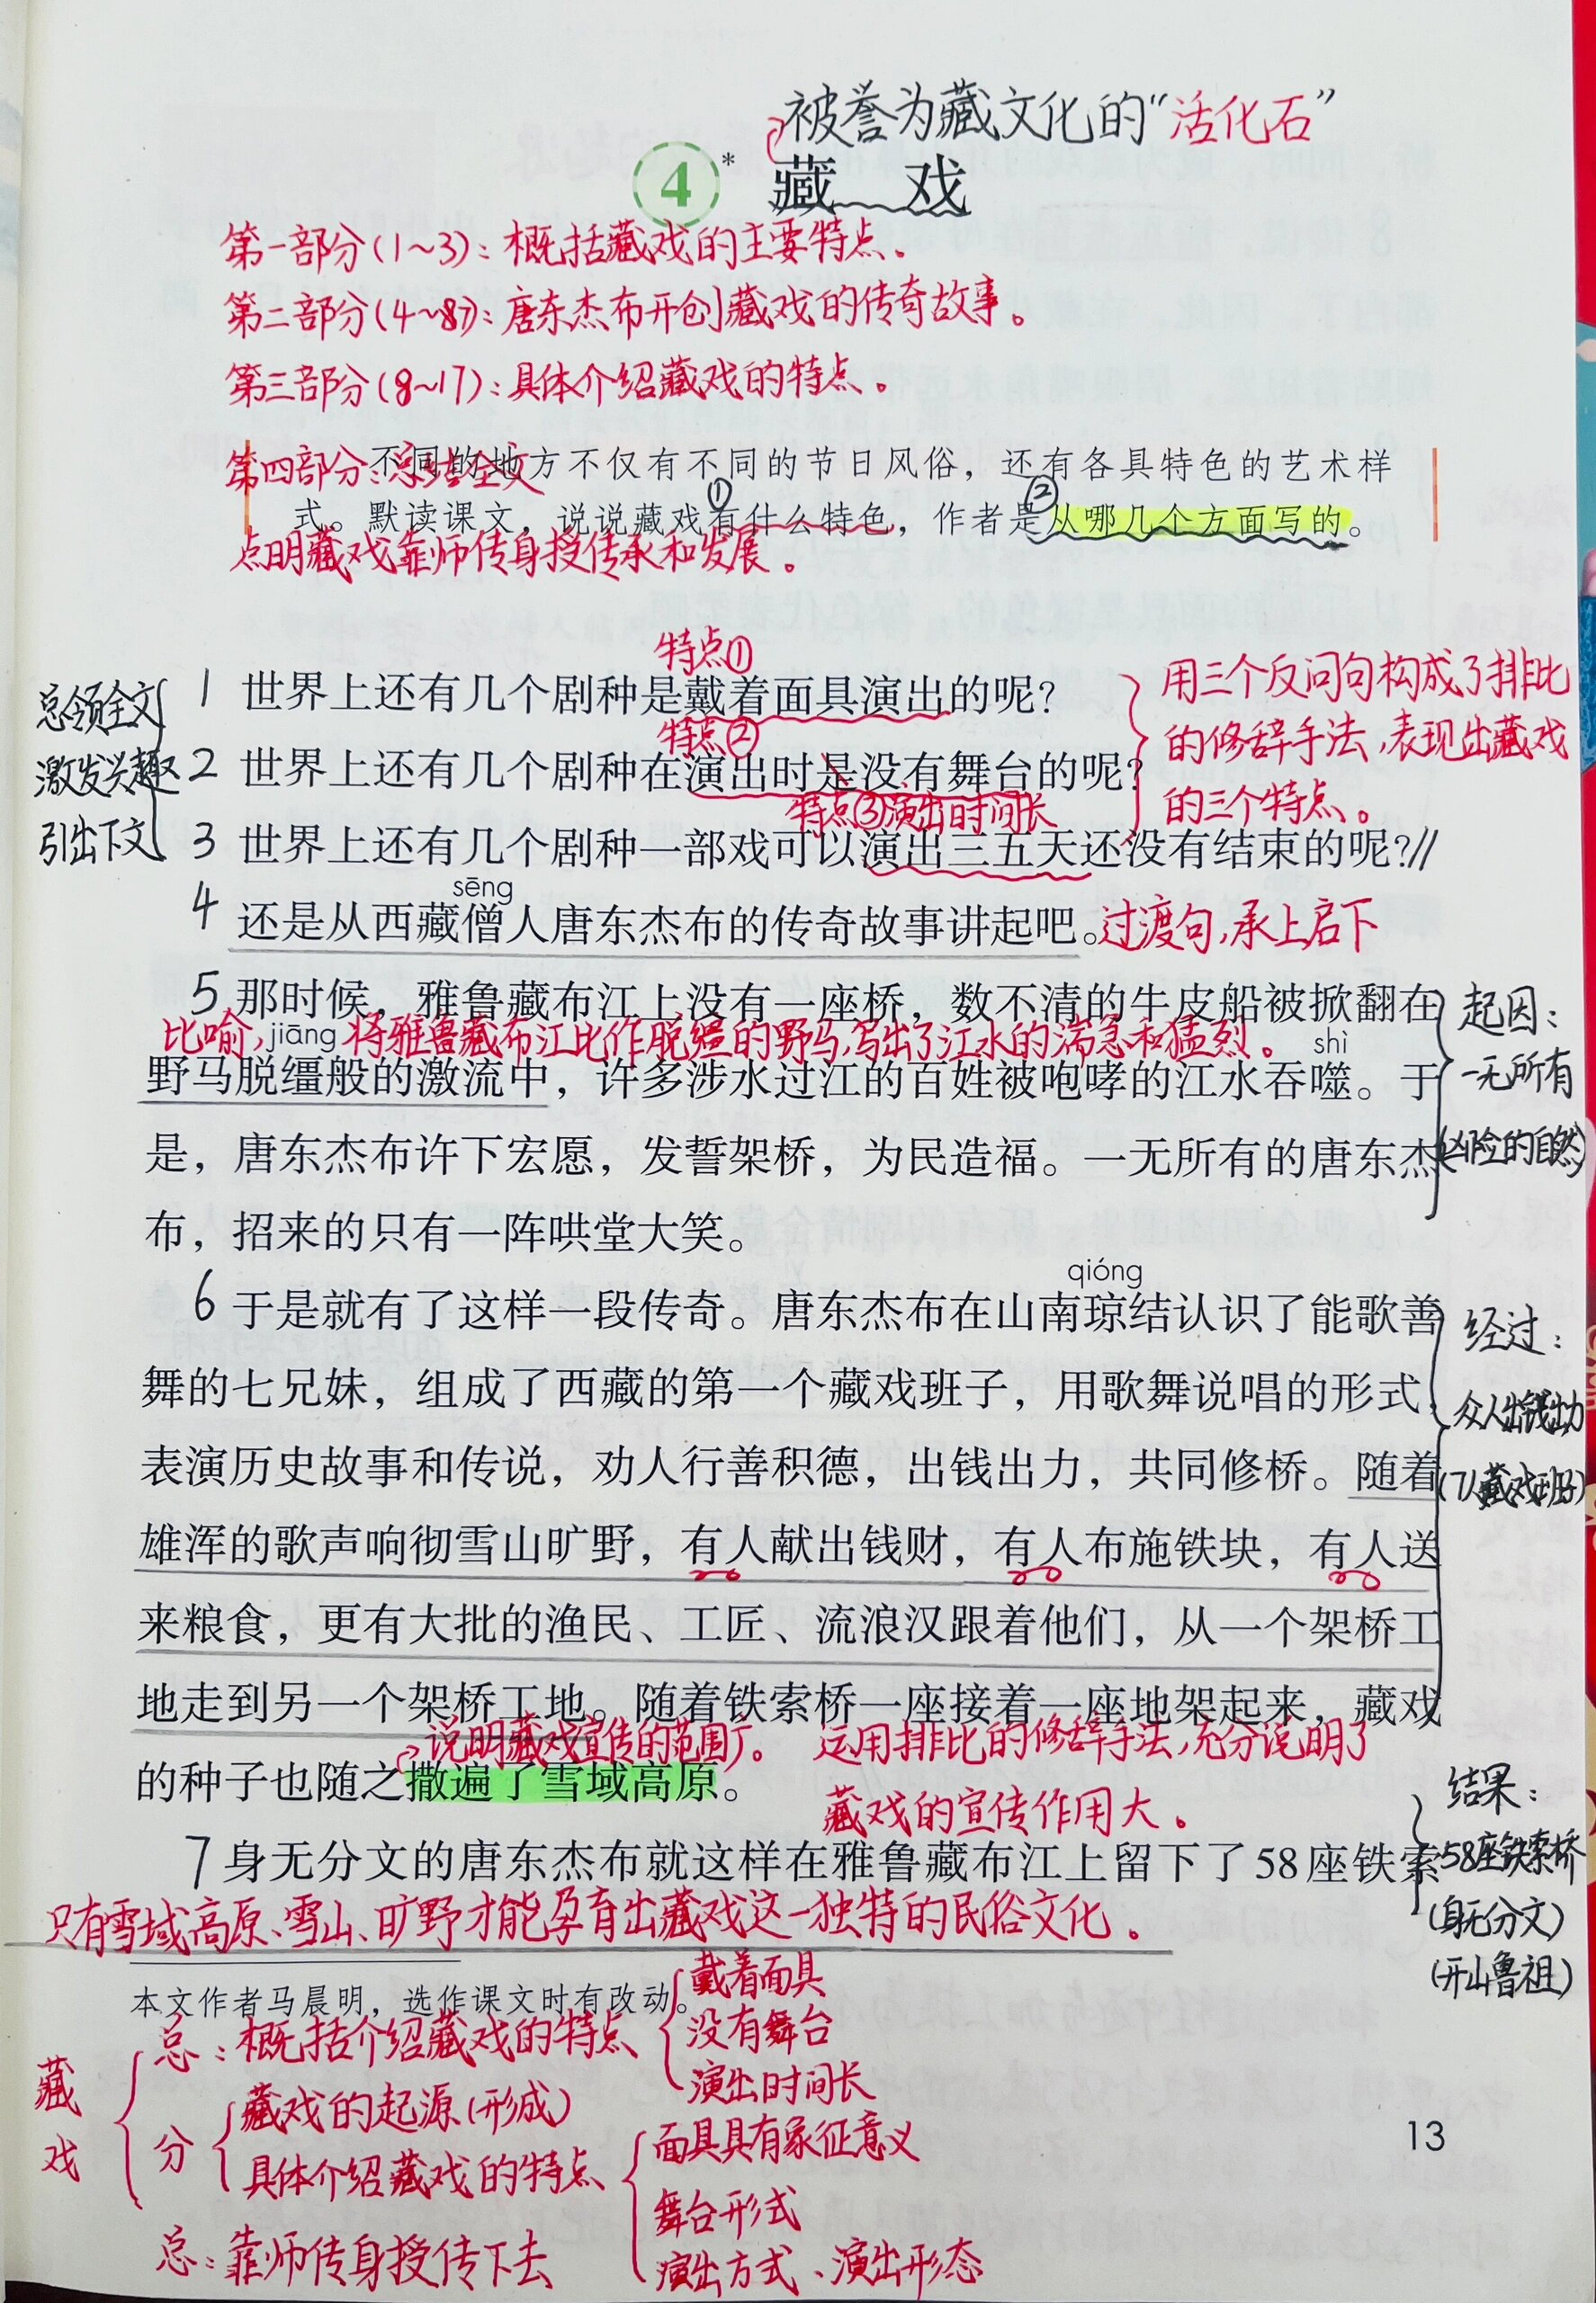 被誉为藏文化的“活化石”
4* 藏 戏
第一部分(1~3)：概括藏戏的主要特点。
第二部分(4~87)：唐东杰布开创藏戏的传奇故事。
第三部分(8~17)：具体介绍藏戏的特点。
第四部分：总结全文
不同的地方不仅有不同的节日风俗，还有各具特色的艺术样
① ②
式。默读课文，说说藏戏有什么特色，作者是从哪几个方面写的。
点明藏戏靠师传身授传承和发展。
特点①
总领全文
激发兴趣
引出下文
1 世界上还有几个剧种是戴着面具演出的呢？
用三个反问句构成了排比
的修辞手法，表现出藏戏
的三个特点。
特点②
2 世界上还有几个剧种在演出时是没有舞台的呢？
特点③演出时间长
3 世界上还有几个剧种一部戏可以演出三五天还没有结束的呢？//
sēng
4 还是从西藏僧人唐东杰布的传奇故事讲起吧。过渡句，承上启下
5 那时候，雅鲁藏布江上没有一座桥，数不清的牛皮船被掀翻在
比喻，将雅鲁藏布江比作脱缰的野马，写出了江水的湍急和猛烈。
jiāng shì
野马脱缰般的激流中，许多涉水过江的百姓被咆哮的江水吞噬。于
是，唐东杰布许下宏愿，发誓架桥，为民造福。一无所有的唐东杰
布，招来的只有一阵哄堂大笑。
起因：
一无所有
(凶险的自然)
qióng
6 于是就有了这样一段传奇。唐东杰布在山南琼结认识了能歌善
舞的七兄妹，组成了西藏的第一个藏戏班子，用歌舞说唱的形式，
表演历史故事和传说，劝人行善积德，出钱出力，共同修桥。随着
雄浑的歌声响彻雪山旷野，有人献出钱财，有人布施铁块，有人送
来粮食，更有大批的渔民、工匠、流浪汉跟着他们，从一个架桥工
地走到另一个架桥工地。随着铁索桥一座接着一座地架起来，藏戏
的种子也随之撒遍了雪域高原。
经过：
众人出钱出力
(7人藏戏班子)
说明藏戏宣传的范围广。
运用排比的修辞手法，充分说明了
藏戏的宣传作用大。
7 身无分文的唐东杰布就这样在雅鲁藏布江上留下了58座铁索
结果：
58座铁索桥
(身无分文)
(开山鲁祖)
只有雪域高原、雪山、旷野才能孕育出藏戏这一独特的民俗文化。
本文作者马晨明，选作课文时有改动。
藏戏
总：概括介绍藏戏的特点
戴着面具
没有舞台
演出时间长
分
藏戏的起源(形成)
具体介绍藏戏的特点
面具具有象征意义
舞台形式
演出方式、演出形态
总：靠师传身授传下去
13